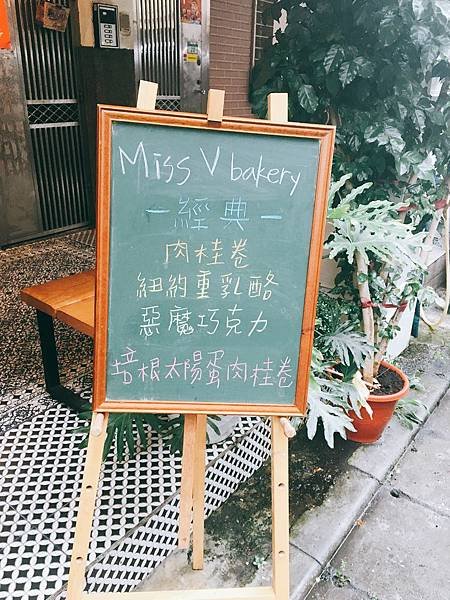 Miss V bakery
－經典－
肉桂卷
紐約重乳酪
惡魔巧克力
培根太陽蛋肉桂卷